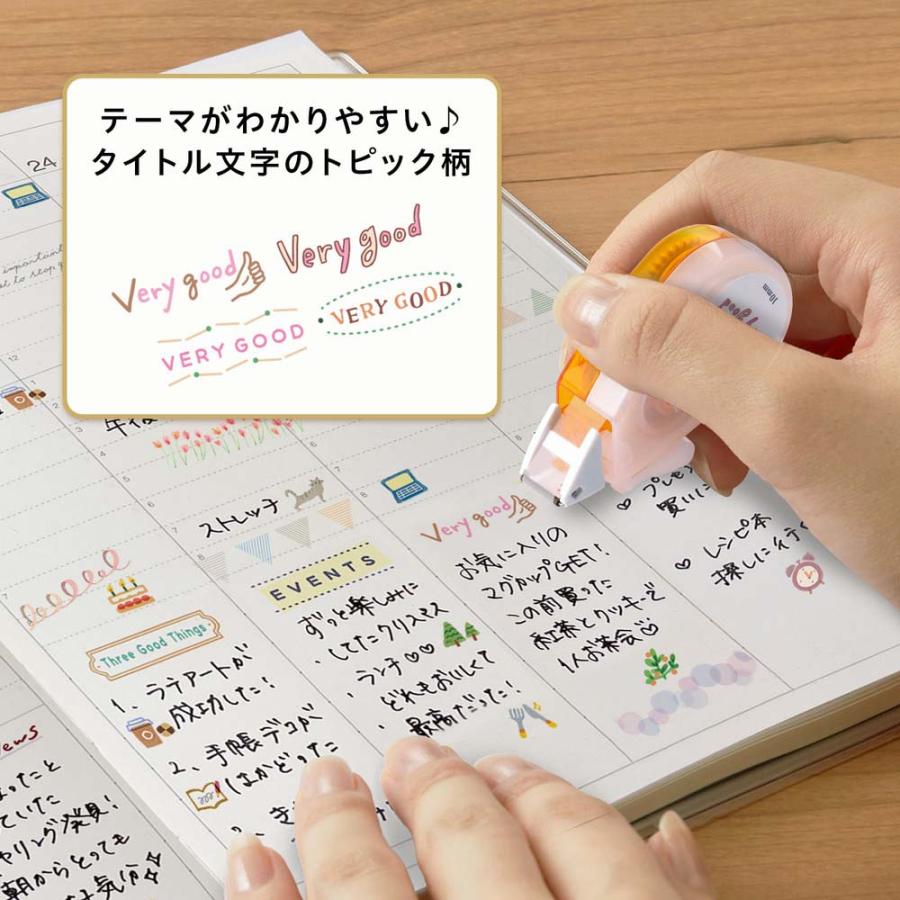 テーマがわかりやすい♪
タイトル文字のトピック柄
Very good
Very good
VERY GOOD
VERY GOOD
24
important
10mm
午後
ストレッチ
EVENTS
ずっと楽しみに
してたクリスマス
ランチ♡♡
どれもおいしくて
最高だった!
Very good
お気に入りの
マグカップGET!
この前買った
紅茶とクッキーで
1人お茶会♡
♡
買いに
♡ レシピ本
探しに行く
Three Good Things
1、ラテアートが
成功した!
2、手帳デコが
はかどった
ews
ていた
リング発見!
朝からとっても
気分